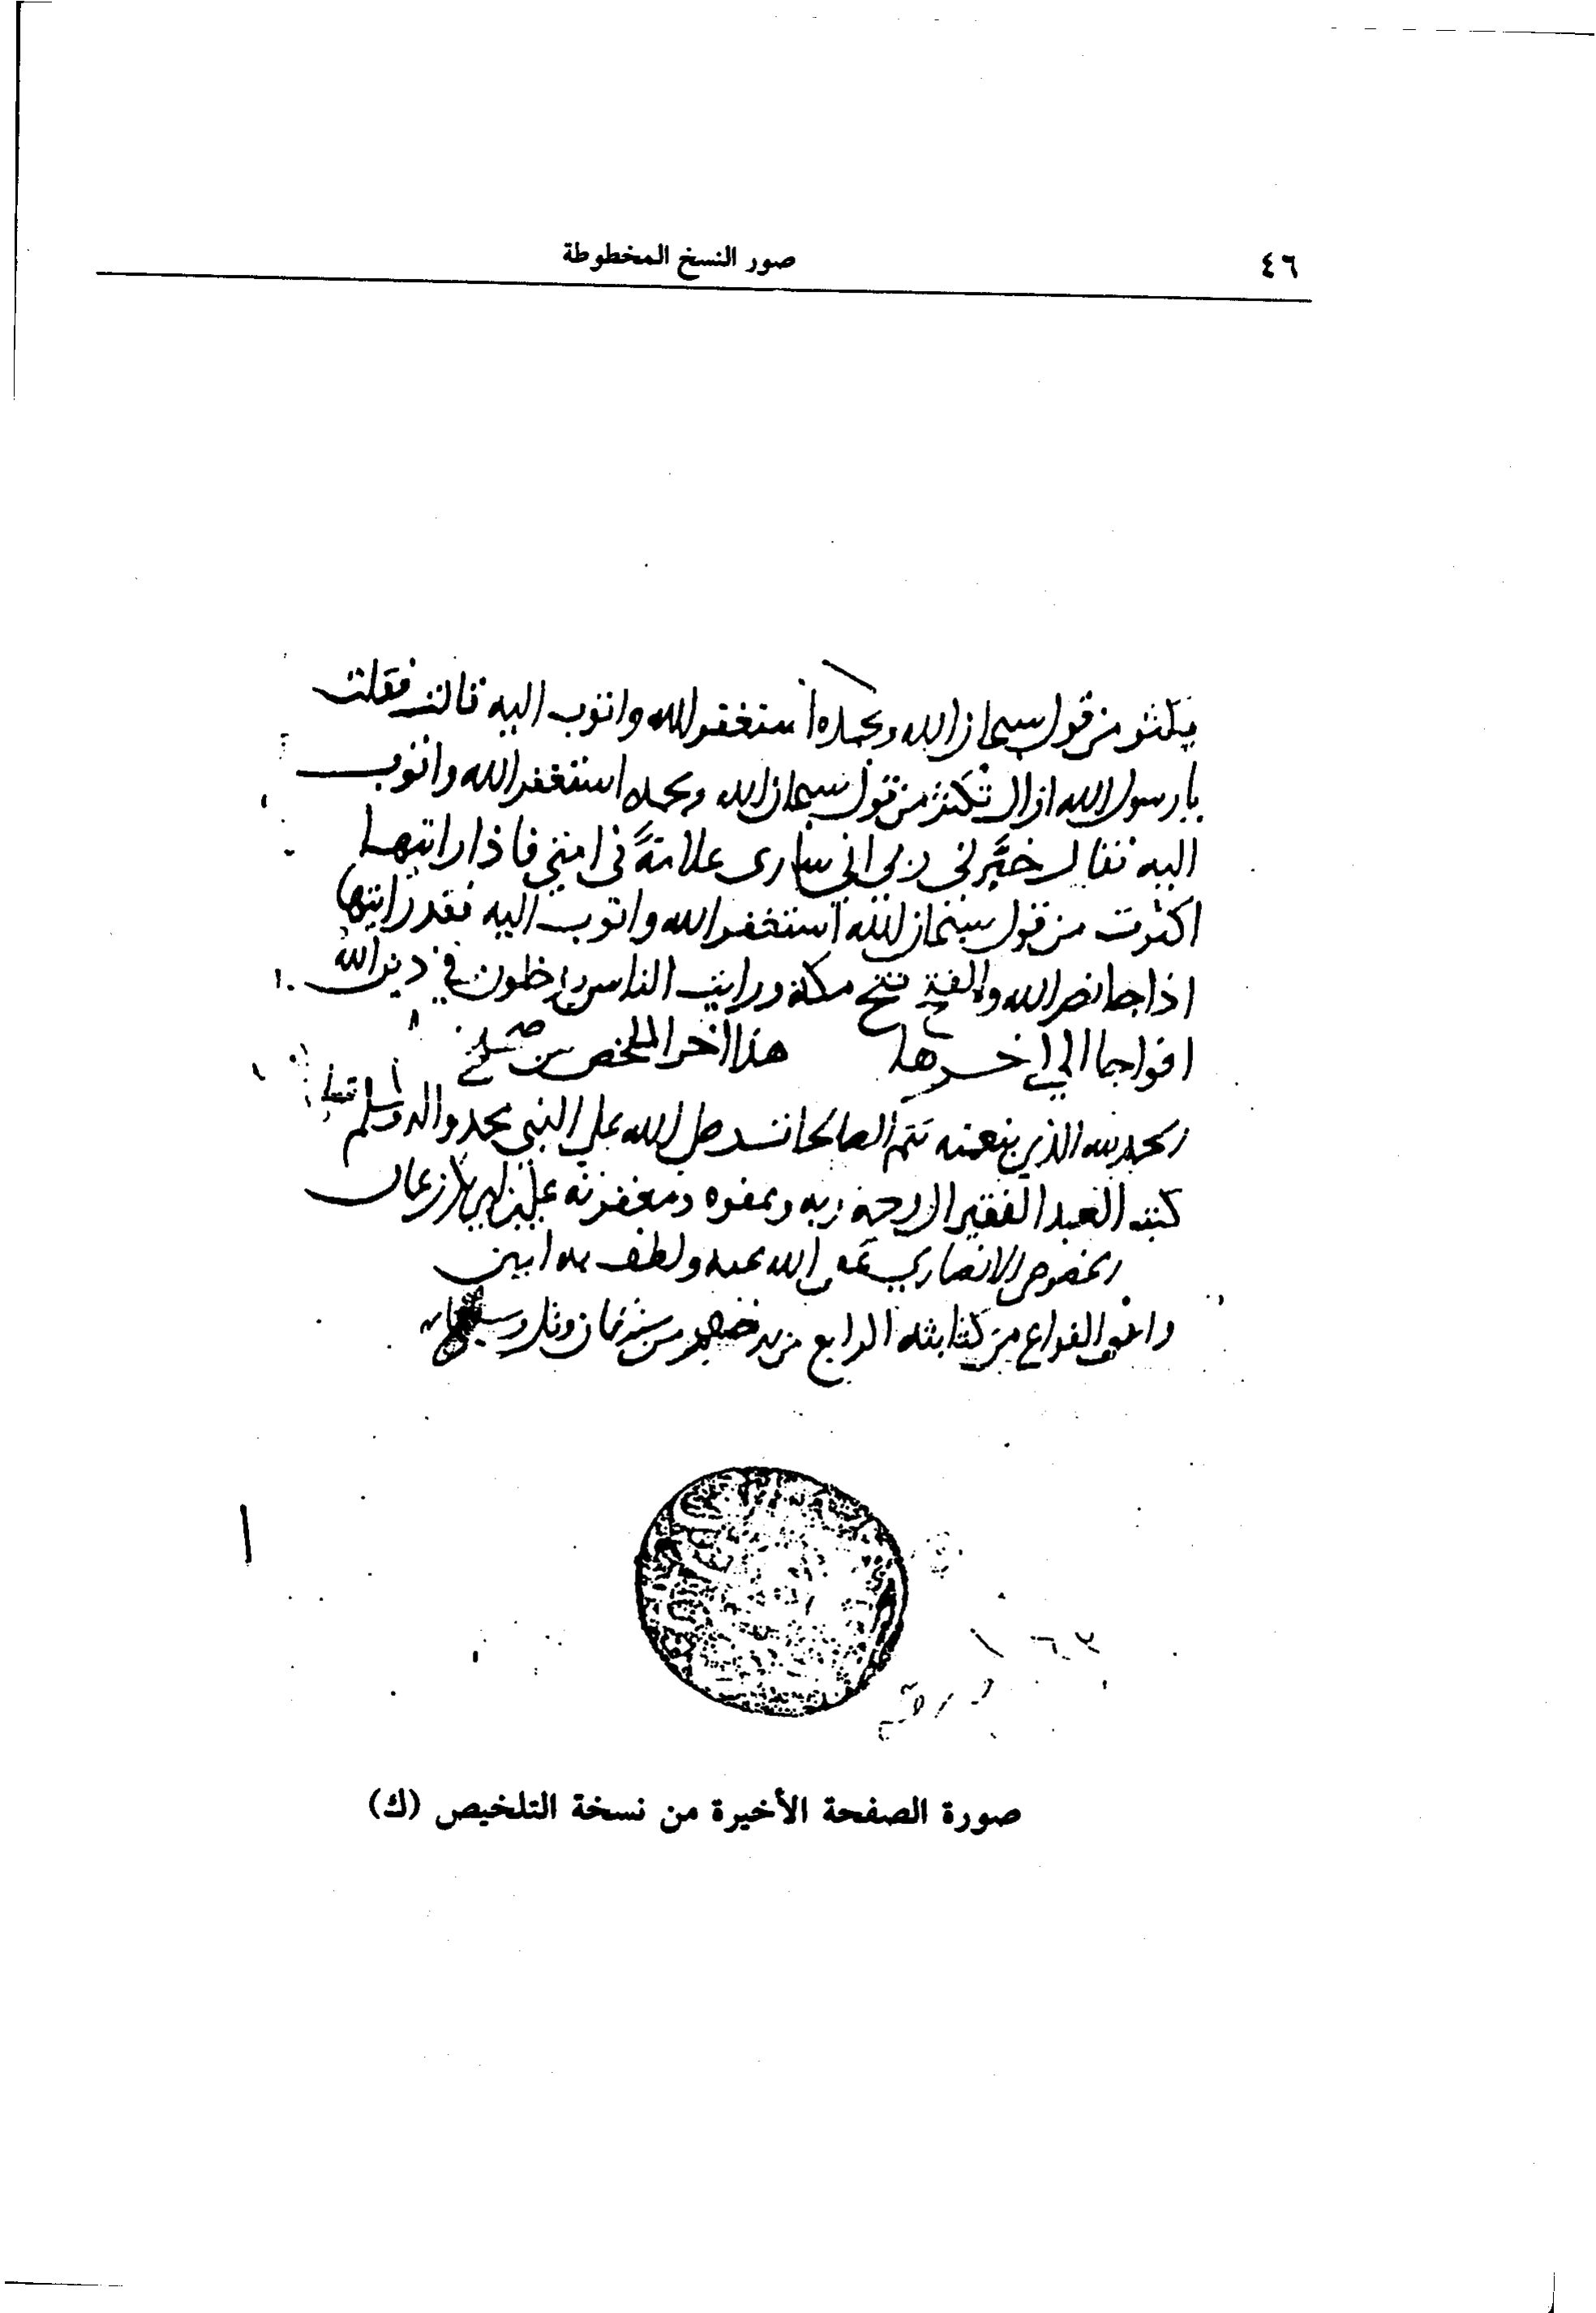 ٤٦
صور النسخ المخطوطة
يكثر من قول سبحان الله وبحمده استغفر الله واتوب اليه قالت فقلت
يا رسول الله اراك تكثر من قول سبحان الله وبحمده استغفر الله واتوب
اليه فقال خبَّرني ربي اني سارى علامةً في امتي فاذا رايتها
اكثرت من قول سبحان الله استغفر الله واتوب اليه فقد رايتها
اذا جا نصر الله والفتح فتح مكة ورايت الناس يدخلون في دين الله
افواجا الي اخرها هذا اخر الملخص من
الحمد لله الذي بنعمته تتم الصالحات صل الله علي النبي محمد واله وسلم
كتبه العبد الفقير الي رحمة ربه وعفوه ومغفرته علي بن
الانصاري عفى الله عنه ولطف به امين
الفراغ من كتابته الرابع من
صورة الصفحة الأخيرة من نسخة التلخيص (ك)